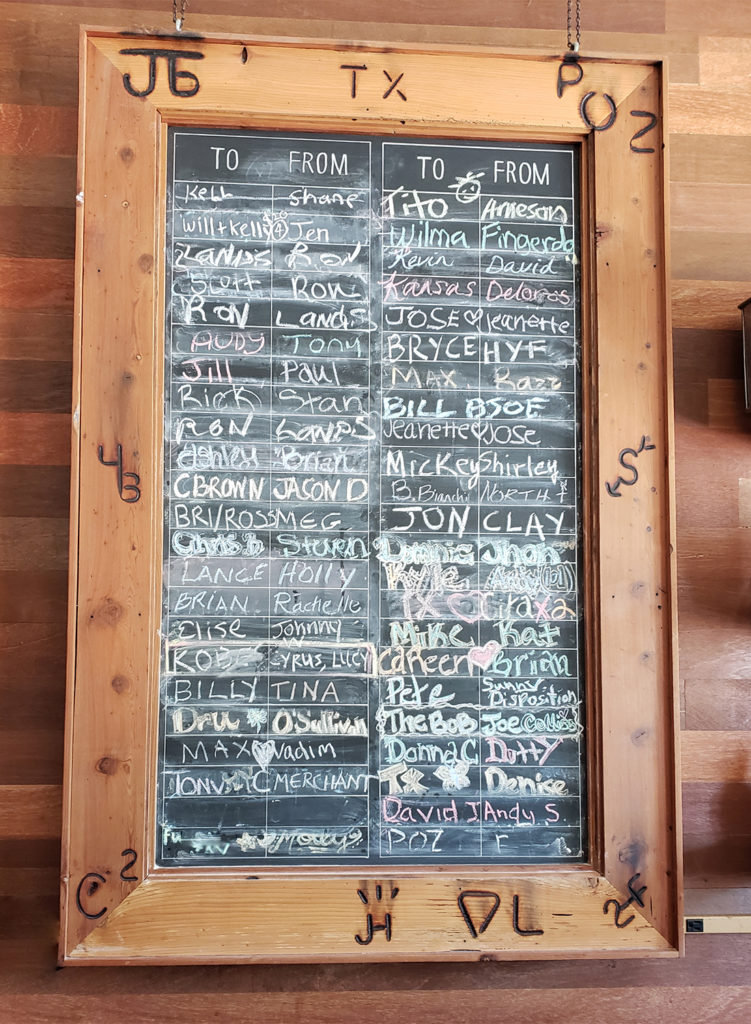 JB TX P
O Z
TO FROM
Kell Shane
Will+Kelly $20 4 Jen
Lands Ron
Scott Ron
Ron Lands
AUDY Tony
Jill Paul
Rick Stan
RON LANDS
Ashley Brian
C BROWN JASON D
BRI/ROSS MEG
Chris b Steven
LANCE HOLLY
BRIAN Rachelle
Elise Johnny W
KOBE CYRUS, LUCY
BILLY TINA
Dru O'Sullivan
MAX Vadim
MERCHANT
TO FROM
Tito Arneson
Wilma Fingerdo
Kevin David
Kansas Delores
JOSE Jeanette
BRYCE HYF
MAX
BILL B SOE
Jeanette Jose
Mickey Shirley
B. Bianchi NORTH F
JON CLAY
Dennis Jhon
Kyle
TX
Mike Kat
Careen Brian
Pete Sunny Disposition
The Bob Joe
Donna C Dotty
Tx Denise
David J Andy S.
POZ F
4B S
C 2 H L 2F